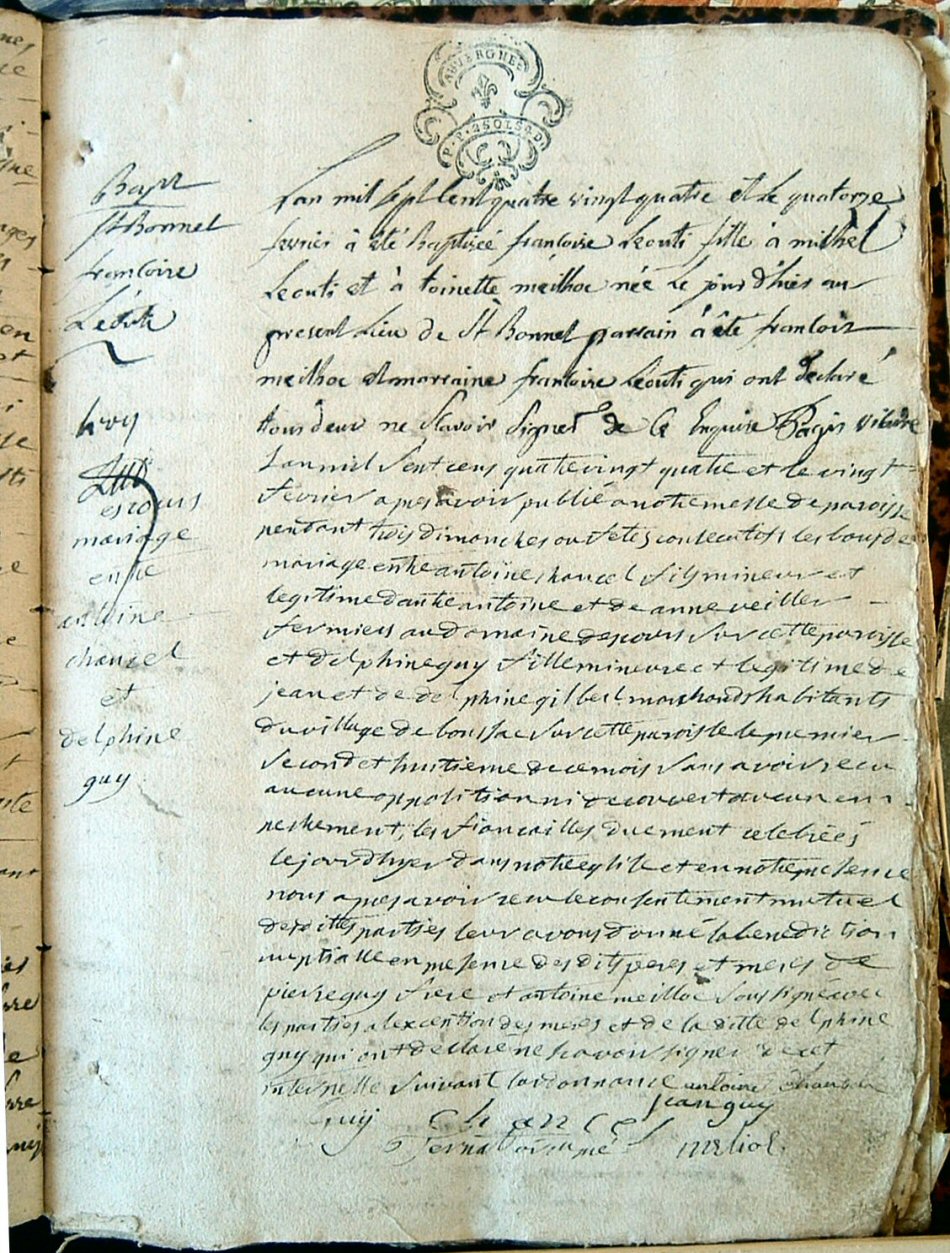 AUVERGNE
P.P. 2 SOLS 8 D.
Bapt
St Bonnet
francoise
Léouti
Lan mil sept cent quatre vingt quatre et le quatorze
fevrier à été baptisée francoise Leouti fille à michel
Leouti et à toinette meilhoc née le jour d'hier au
present Lieu de St Bonnet parrain à été francois
meilhoc et marraine francoise Leouti qui ont declaré
tous deux ne scavoir signer de ce enquire vicaire
mariage
entre
antoine
chancel
et
delphine
guy
Lan mil sept cens quatre vingt quatre et le vingt
fevrier apres avoir publié a notre messe de paroisse
pendant trois dimanches ou fetes consecutifs les bans de
mariage entre antoine chancel fils mineur et
legitime dautre antoine et de anne veiller
fermiers au domaine descours sur cette paroisse
et delphine guy fille mineure et legitime de
jean et de delphine gilbert marchands habitants
du village de boussac sur cette paroisse le premier
second et huitieme de ce mois sans avoir recu
aucune opposition ni decouvert aucun em
peschement, les fiancailles duement celebrées
le jour dhyer dans notre eglise et en notre presence
nous apres avoir recu le consentement mutuel
desdittes parties leur avons donné la benediction
nuptialle en presence des dits peres et meres de
pierre guy frere et antoine meilloc soussigné avec
les parties a lexception des meres et de la ditte delphine
guy qui ont declaré ne scavoir signer de cet
interpellé suivant lordonnance antoine chancel
guy chancel jean guy